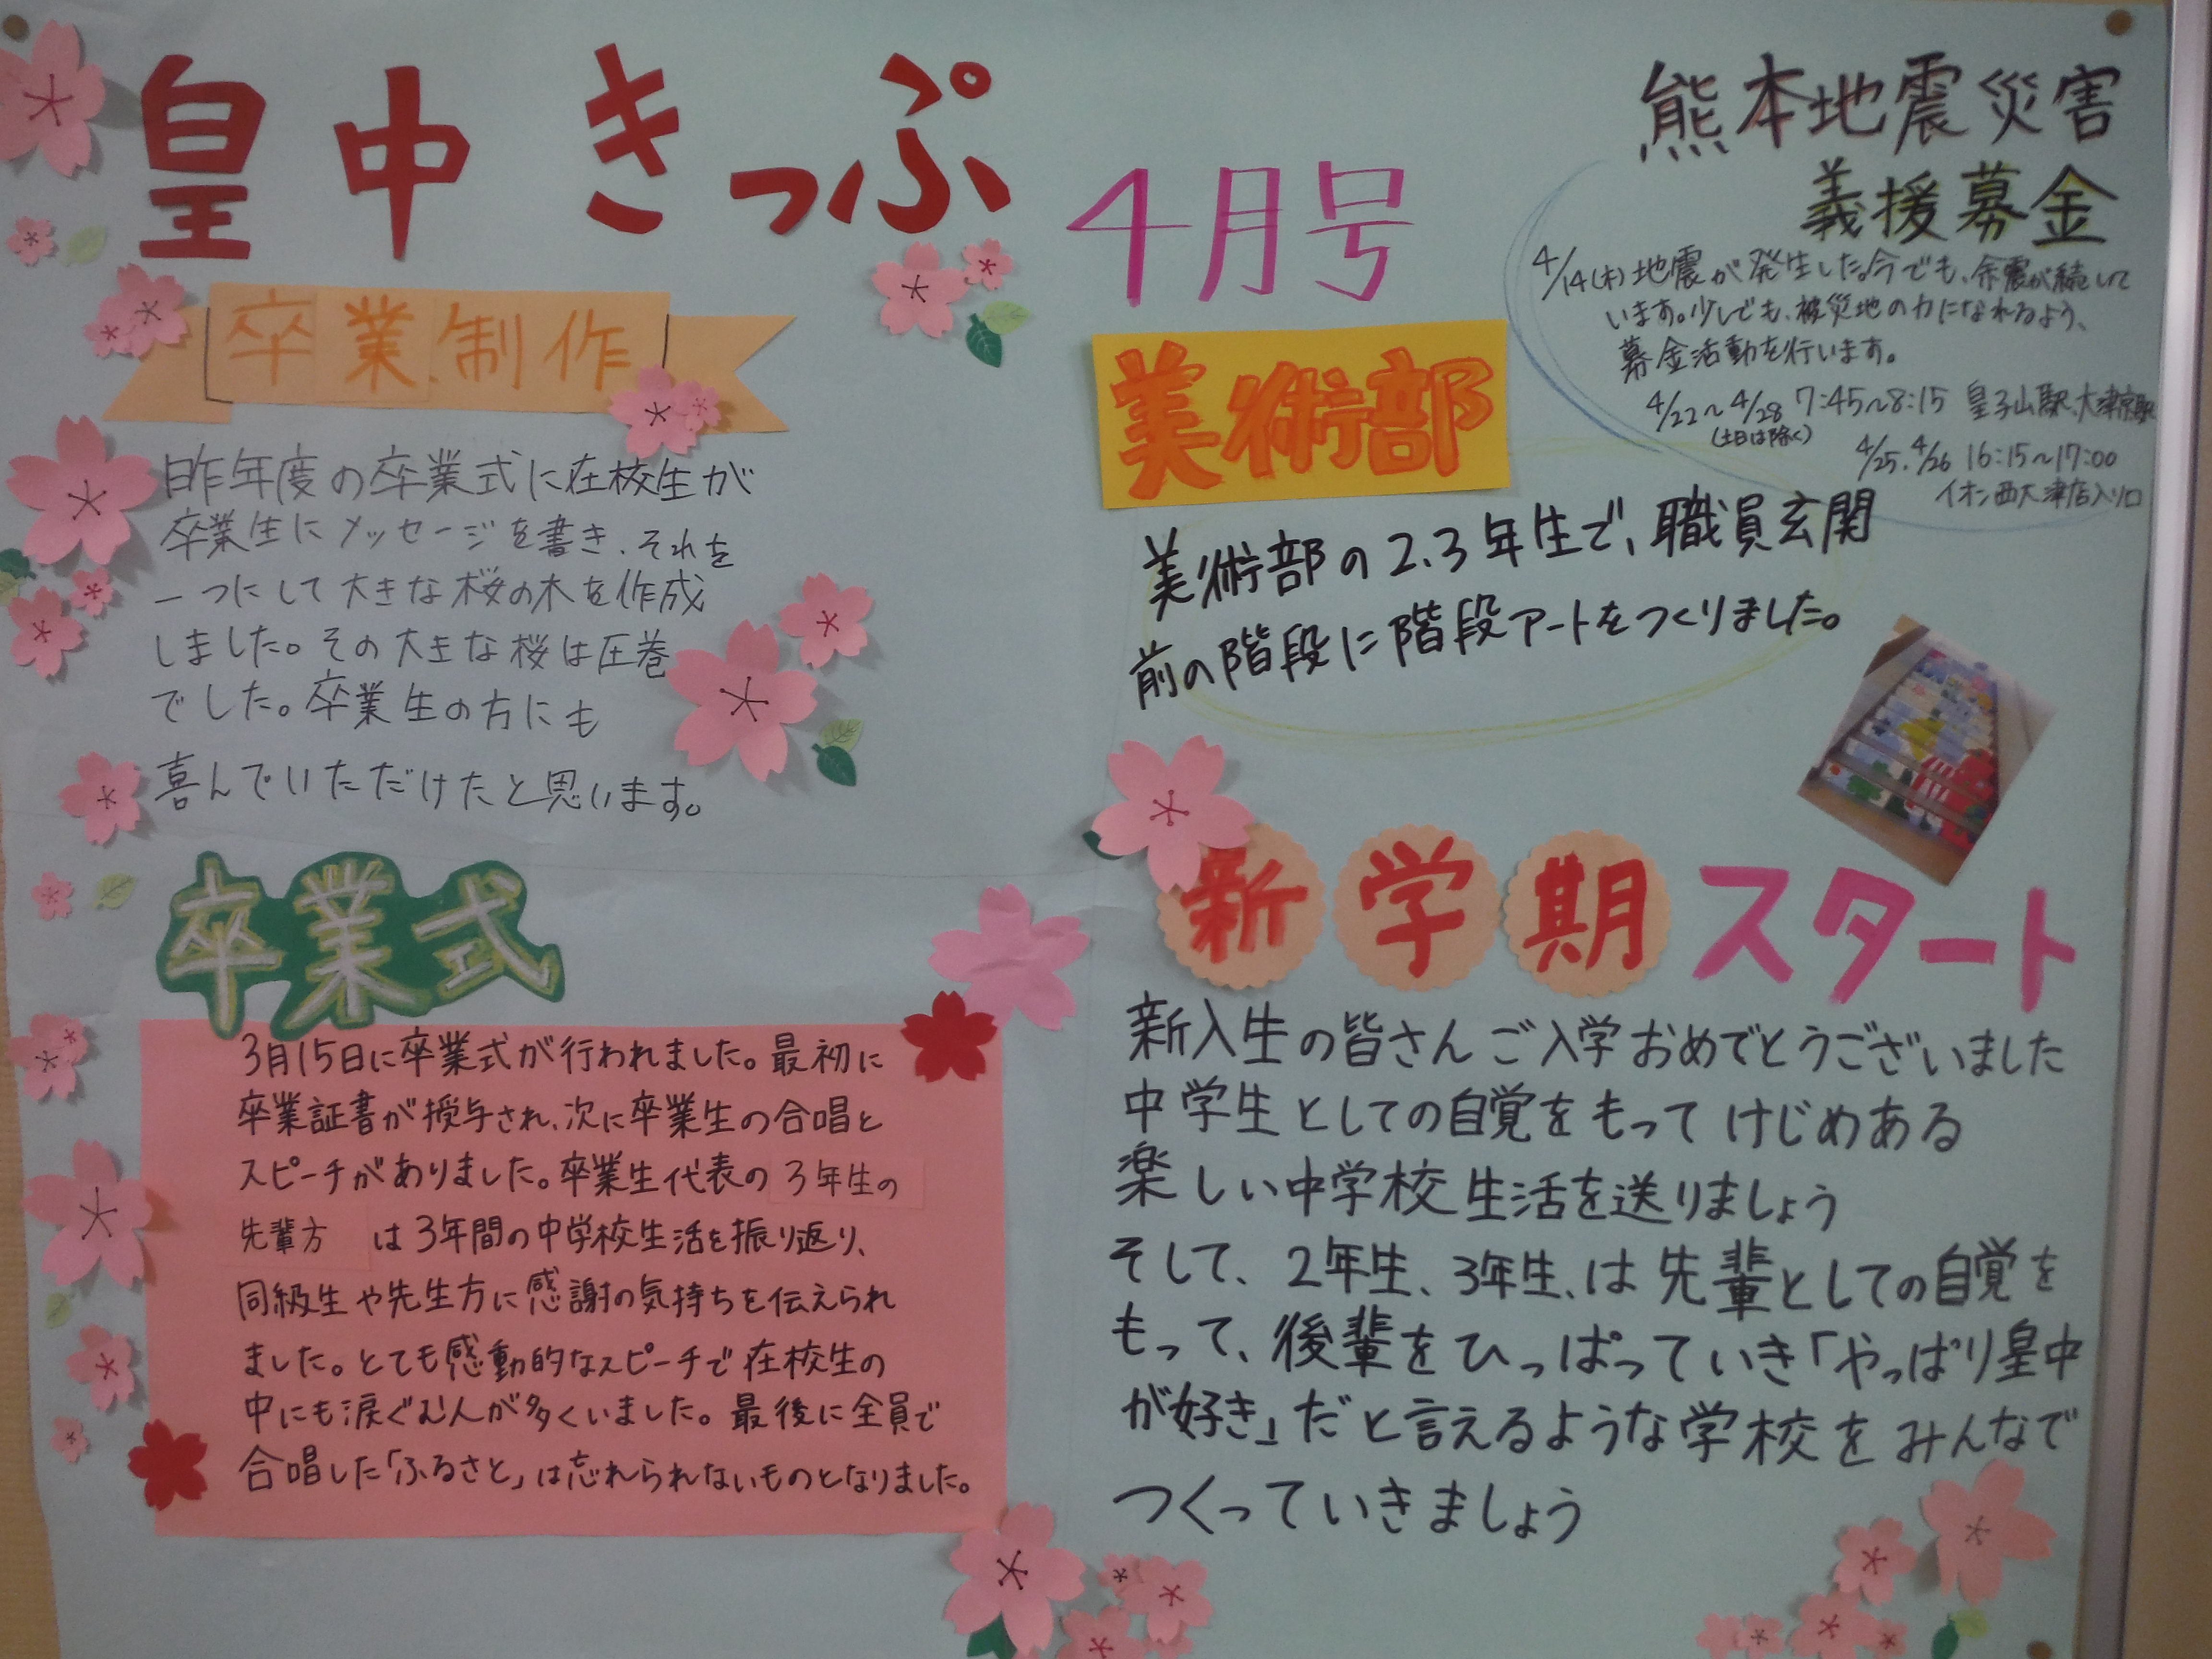 皇中きっぷ
4月号
卒業制作
昨年度の卒業式に在校生が
卒業生にメッセージを書き、それを
一つにして大きな桜の木を作成
しました。その大きな桜は圧巻
でした。卒業生の方にも
喜んでいただけたと思います。
卒業式
3月15日に卒業式が行われました。最初に
卒業証書が授与され、次に卒業生の合唱と
スピーチがありました。卒業生代表の3年生の
先輩方は3年間の中学校生活を振り返り、
同級生や先生方に感謝の気持ちを伝えられ
ました。とても感動的なスピーチで在校生の
中にも涙ぐむ人が多くいました。最後に全員で
合唱した「ふるさと」は忘れられないものとなりました。
熊本地震災害
義援募金
4/14(木)地震が発生した。今でも、余震が続いて
います。少しでも、被災地の力になれるよう、
募金活動を行います。
4/22〜4/28 7:45〜8:15 皇子山駅、大津京駅
(土日は除く)
4/25.4/26 16:15〜17:00
イオン西大津店入り口
美術部
美術部の2.3年生で、職員玄関
前の階段に階段アートをつくりました。
新学期スタート
新入生の皆さんご入学おめでとうございました
中学生としての自覚をもってけじめある
楽しい中学校生活を送りましょう
そして、2年生、3年生、は先輩としての自覚を
もって、後輩をひっぱっていき「やっぱり皇中
が好き」だと言えるような学校をみんなで
つくっていきましょう